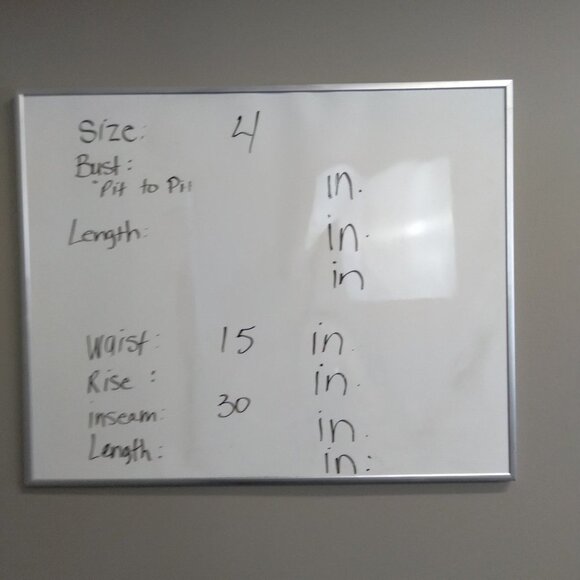 Size: 4
Bust:
"Pit to Pit in.
Length: in.
in
Waist: 15 in.
Rise: in.
inseam: 30 in.
Length: in: